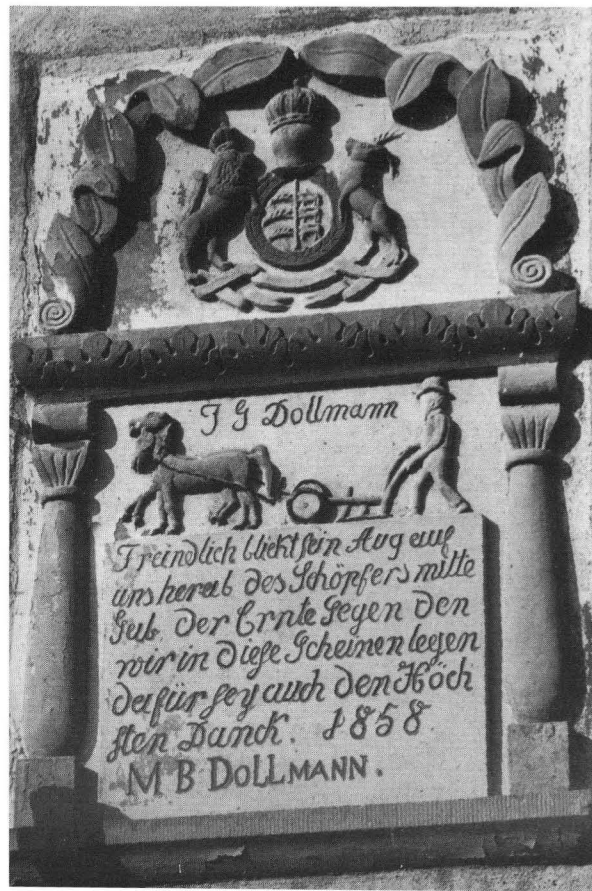 J G Dollmann
Freindlich blickt sein Aug auf
uns herab des Schöpfers milte
Gab. Der Ernte Segen den
wir in diese Scheinen leegen
dafür sey auch den Höch
sten Danck. 1858
M B DOLLMANN.